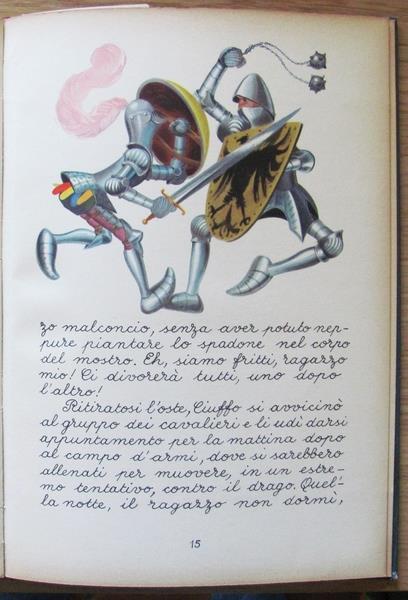 zo malconcio, senza aver potuto nep-
pure piantare lo spadone nel corpo
del mostro. Eh, siamo fritti, ragazzo
mio! Ci divorerà tutti, uno dopo
l'altro!
Ritiratosi l'oste, Ciuffo si avvicinò
al gruppo dei cavalieri e li udì darsi
appuntamento per la mattina dopo
al campo d'armi, dove si sarebbero
allenati per muovere, in un estre-
mo tentativo, contro il drago. Quel-
la notte, il ragazzo non dormì,
15